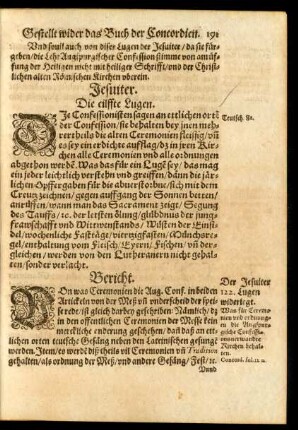 Gestellt wider das Buch der Concordien. 191
Und souil auch von diser Lugen der Jesuiter / da sie für-
geben / die Lehr Augspurgischer Confession stimme von anüf-
fung der Heiligen nicht mit heiliger Schrifft / und der Christ-
lichen alten Römischen Kirchen überein.
Jesuiter.
Die eilffte Lugen.
Die Confessionisten sagen an ettlichen orten
der Confession / sie behalten bey jnen meh-
rertheils die alten Ceremonien fleissig / vñ
es sey ein erdichte aufflag / dz in jren Kir-
chen alle Ceremonien und alle ordnungen
abgethon werdē. Was das für ein Lugē sey / das mag
ein jeder leichtlich verstehn und greiffen / dann die järli-
chen Opffergaben für die abuerstorbnē / sich mit dem
Creutz zeichnen / gegen auffgang der Sonnen betten /
anrüffen / wann man das Sacrament zeigt / Segung
des Tauffs / ꝛc. der letsten ölung / glübdnus der jung-
frawschafft und Witwenstands / Wüsten der Einsid-
del / wochenliche Fasttäge / viertzigfasten / Mönchsre-
gel / enthaltung vom Fleisch / Eyern / Fischen / vñ der-
gleichen / werden von den Lutheranern nicht gehal-
ten / sonder verlacht.
Teutsch. 8.
Bericht.
Von was Ceremonien die Aug. Conf. in beiden
Artickeln von der Meß vñ underscheid der spei-
se rede / ist gleich darbey geschriben / Nämlich / dz
in den offentlichen Ceremonien der Messe kein
merckliche endrung geschehen / dañ daß an et-
lichen orten teutsche Gesäng neben den Lateinischen gesungē
werden. Item / es werdē diß theils vil Ceremonien vñ Tradition
gehalten / als ordnung der Meß / und andere Gesäng / Fest / ꝛc.
Unnd
Der Jesuiter
122. Lugen
widerlegt.
Was für Ceremo-
nien und ordnun-
gen die Augspur-
gische Confessi-
ons verwandte
Kirchen behal-
ten.